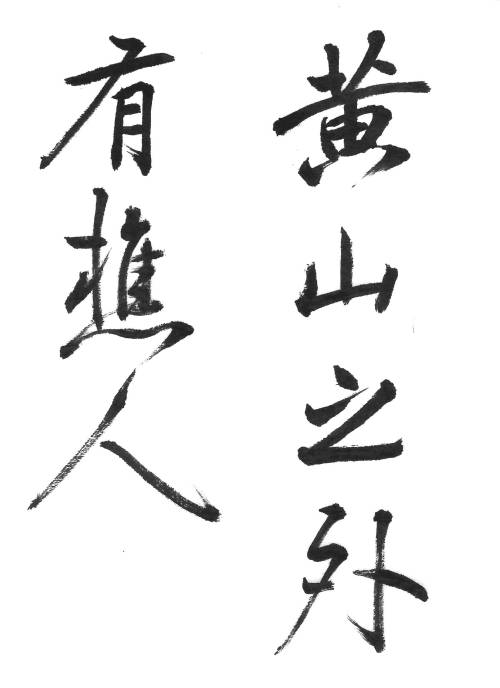 黄山之外
有樵人